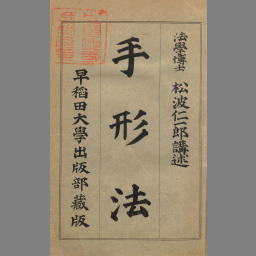 法學博士 松波仁一郎講述
手形法
早稻田大學出版部藏版